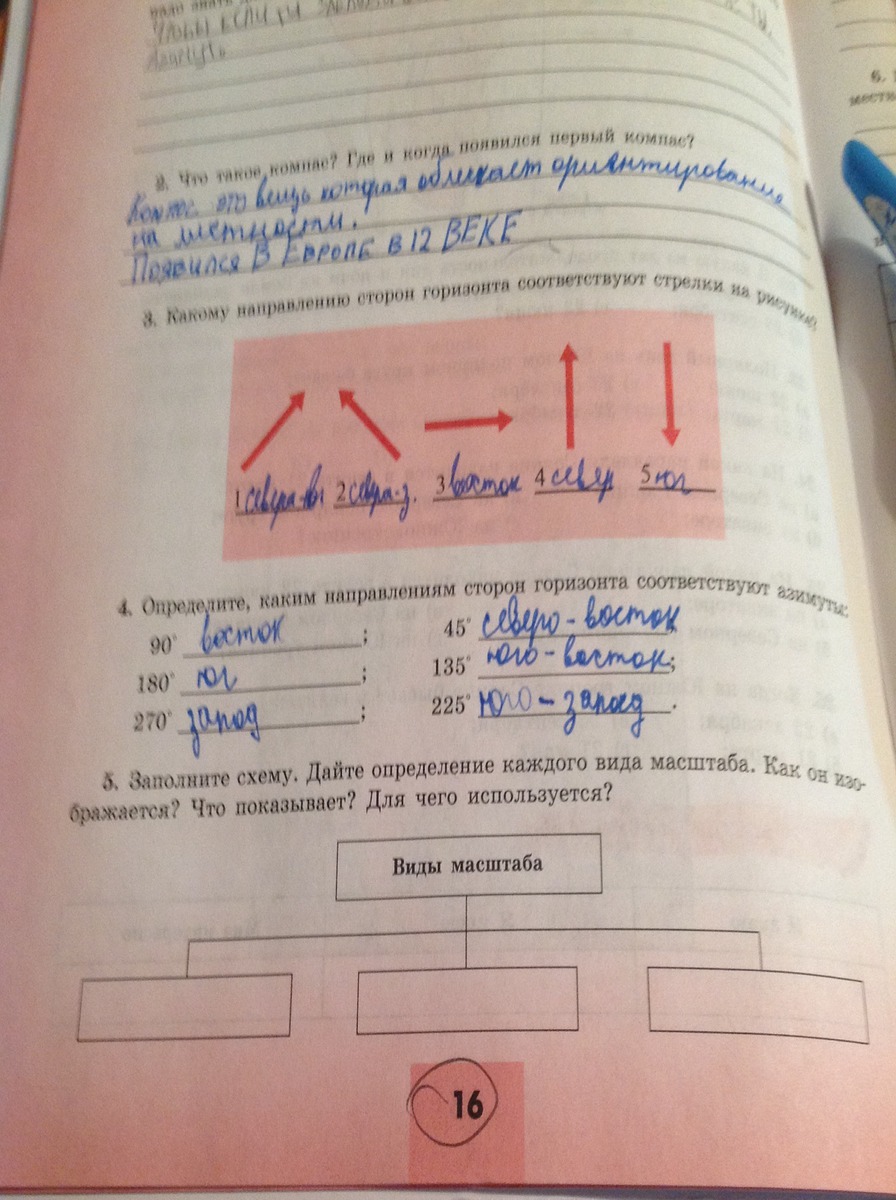 чтобы если ты
2. Что такое компас? Где и когда появился первый компас?
Компос это вещь которая облегчает ориентирование
на местности.
Появился В Европе в 12 ВЕКЕ
3. Какому направлению сторон горизонта соответствуют стрелки на рисунке?
1 севера-вы 2 севра-з. 3 восток 4 север 5 юг
4. Определите, каким направлениям сторон горизонта соответствуют азимуты:
90° восток ; 45° северо-восток ;
180° юг ; 135° юго-восток;
270° запад ; 225° юго-запад .
5. Заполните схему. Дайте определение каждого вида масштаба. Как он изо-
бражается? Что показывает? Для чего используется?
Виды масштаба
16
6.